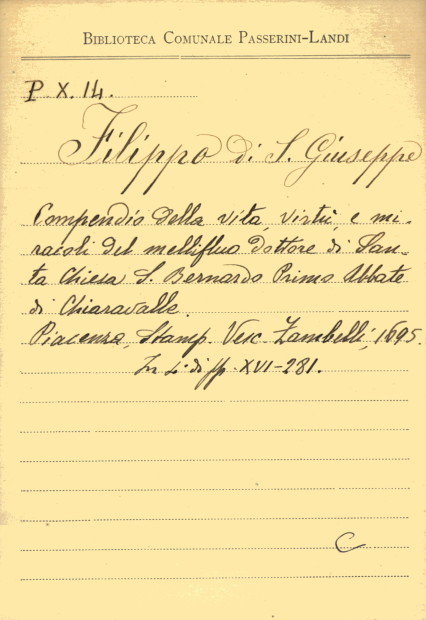 BIBLIOTECA COMUNALE PASSERINI-LANDI
P X. 14.
Filippo di S. Giuseppe
Compendio della vita, virtù, e mi-
racoli del mellifluo dottore di San-
ta Chiesa S. Bernardo Primo Abbate
di Chiaravalle.
Piacenza, Stamp. Vesc. Zambelli, 1695.
In 4° di pp. XVI-281.
C